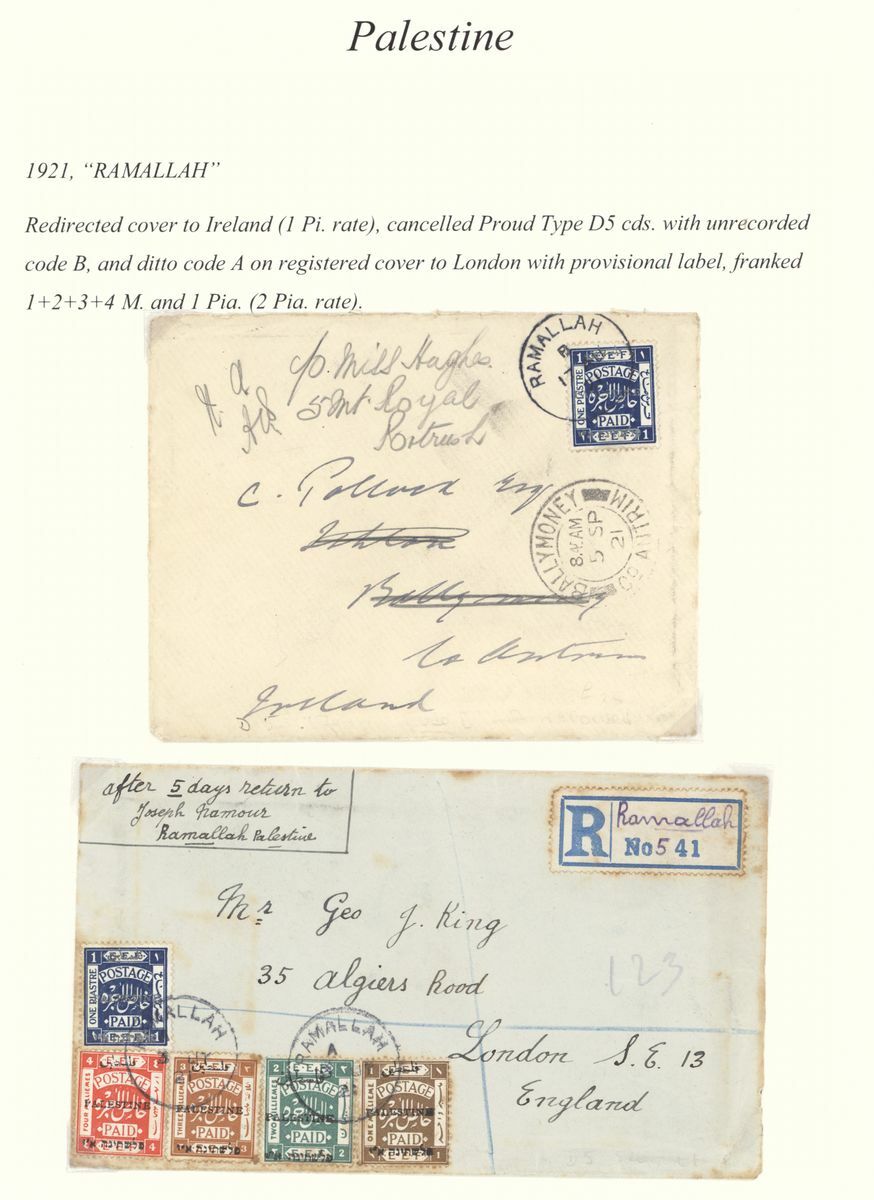 Palestine
1921, “RAMALLAH”
Redirected cover to Ireland (1 Pi. rate), cancelled Proud Type D5 cds. with unrecorded
code B, and ditto code A on registered cover to London with provisional label, franked
1+2+3+4 M. and 1 Pia. (2 Pia. rate).
c/o. Miss Hughes
5 Mt. Royal
Portrush
C. Pollock Esq
Ballymoney
Co Antrim
Ireland
RAMALLAH
B
E.E.F
1 ١
POSTAGE
ONE PIASTRE
خالص الأجرة
PAID
١ E.E.F 1
BALLYMONEY
8.40AM
5 SP
21
CO. ANTRIM
after 5 days return to
Joseph Hamour
Ramallah Palestine
R Ramallah
No 541
Mr Geo J. King
35 Algiers Road
London S.E. 13
England
123
1 E.E.F ١
POSTAGE
ONE PIASTRE
خالص الأجرة
PAID
RAMALLAH
RAMALLAH
A
4 ٤
POSTAGE
FOUR MILLIEMES
فلسطين
PALESTINE
PAID
פלשתינה א״י
4
3 ٣
POSTAGE
THREE MILLIEMES
فلسطين
PALESTINE
PAID
פלשתינה א״י
3
2 E.E.F ٢
POSTAGE
TWO MILLIEMES
PALESTINE
PAID
פלשתינה א״י
2
1 ١
POSTAGE
ONE MILLIEME
فلسطين
PALESTINE
PAID
פלשתינה א״י
1